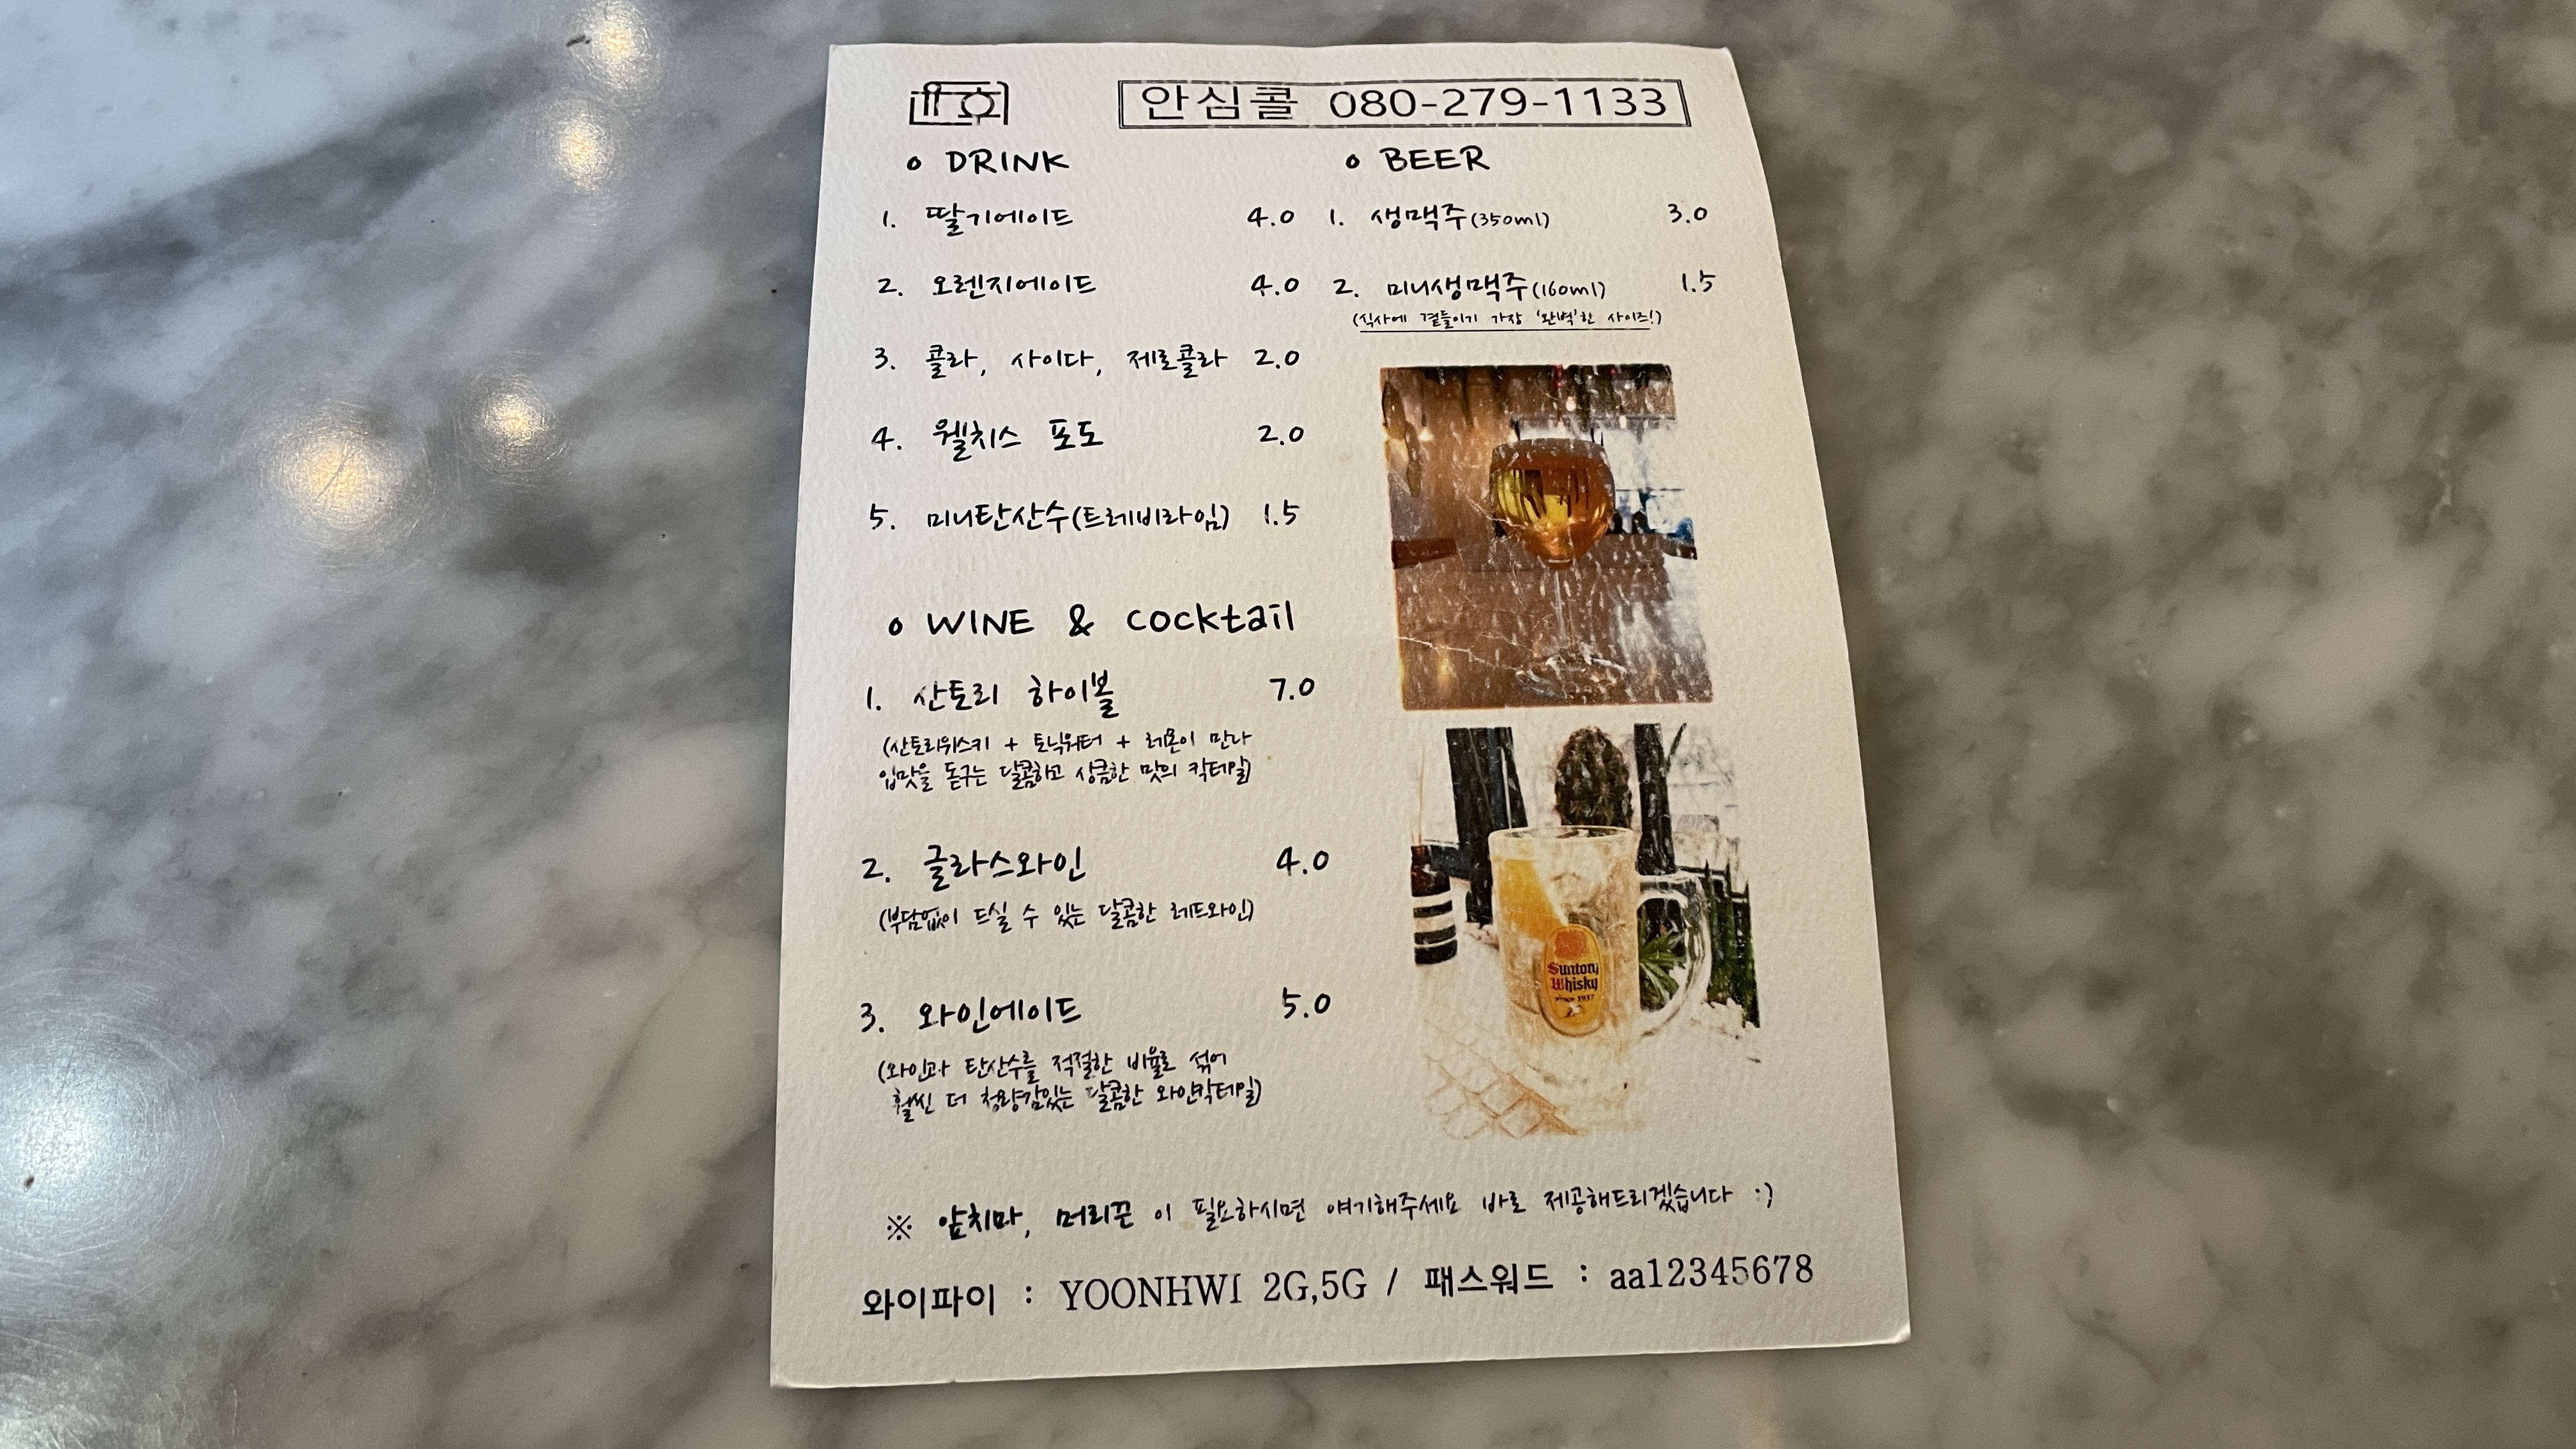 안심콜 080-279-1133
o DRINK
1. 딸기에이드 4.0
2. 오렌지에이드 4.0
3. 콜라, 사이다, 제로콜라 2.0
4. 웰치스 포도 2.0
5. 미니탄산수(트레비라임) 1.5
o BEER
1. 생맥주(350ml) 3.0
2. 미니생맥주(160ml) 1.5
(식사에 곁들이기 가장 '완벽'한 사이즈!)
o WINE & cocktail
1. 산토리 하이볼 7.0
(산토리위스키 + 토닉워터 + 레몬이 만나
입맛을 돋구는 달콤하고 상큼한 맛의 칵테일)
2. 글라스와인 4.0
(부담없이 드실 수 있는 달콤한 레드와인)
3. 와인에이드 5.0
(와인과 탄산수를 적절한 비율로 섞어
훨씬 더 청량감있는 달콤한 와인칵테일)
Suntory
Whisky
since 1937
※ 앞치마, 머리끈 이 필요하시면 얘기해주세요 바로 제공해드리겠습니다 :)
와이파이 : YOONHWI 2G,5G / 패스워드 : aa12345678